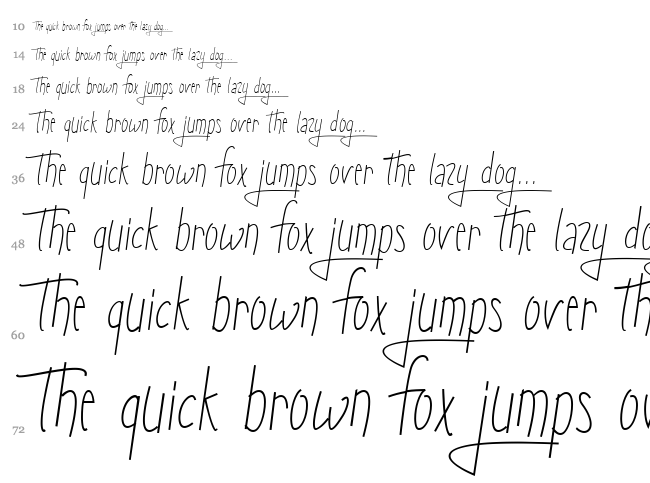 10 The quick brown fox jumps over the lazy dog...
14 The quick brown fox jumps over the lazy dog...
18 The quick brown fox jumps over the lazy dog...
24 The quick brown fox jumps over the lazy dog...
36 The quick brown fox jumps over the lazy dog...
48 The quick brown fox jumps over the lazy do
60 The quick brown fox jumps over th
72 The quick brown fox jumps ov